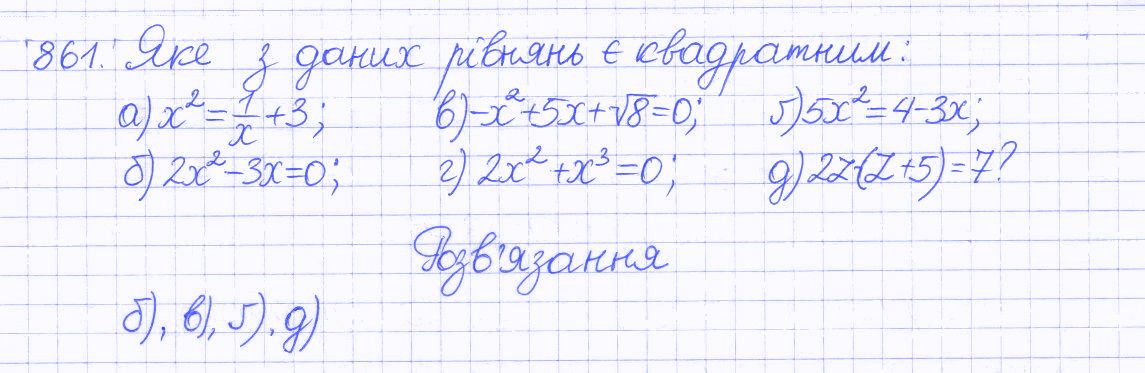 861. Яке з даних рівнянь є квадратним:
а) x² = 1/x + 3; в) -x² + 5x + √8 = 0; ґ) 5x² = 4 - 3x;
б) 2x² - 3x = 0; г) 2x² + x³ = 0; д) 2z·(z + 5) = 7?
Розв'язання
б), в), ґ), д)